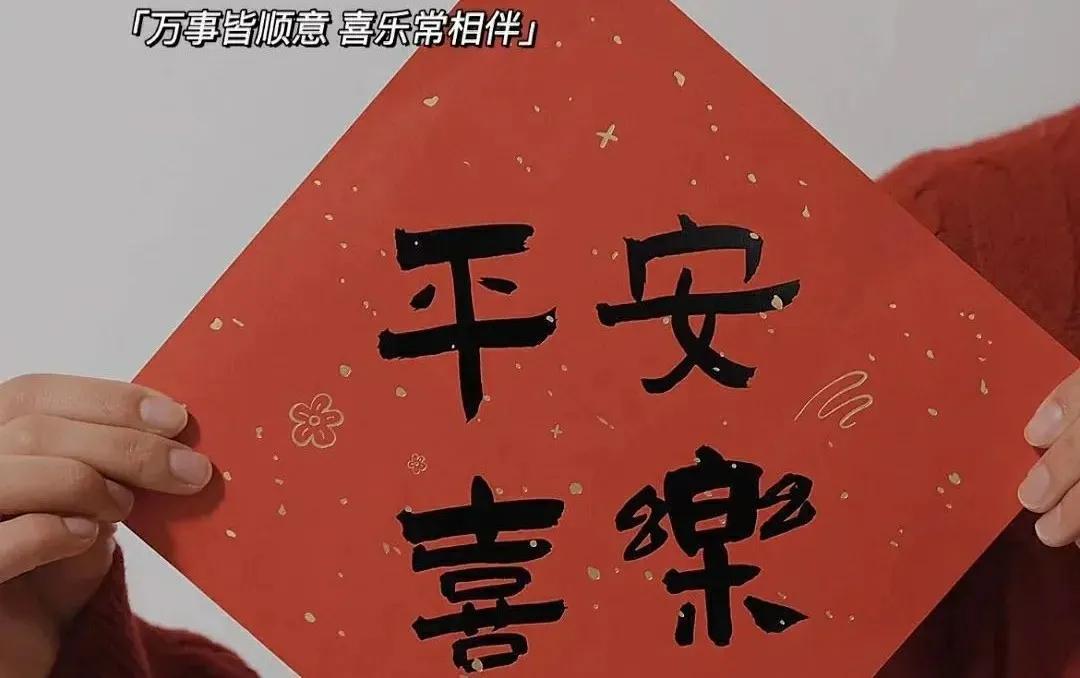 「万事皆顺意 喜乐常相伴」
平安
喜樂